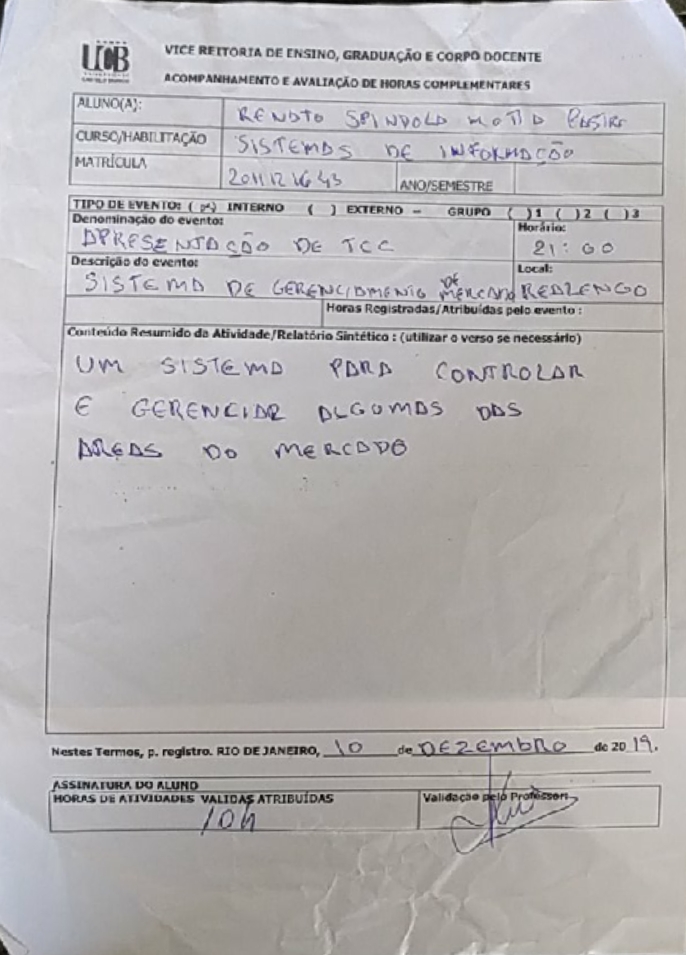 UCB
VICE REITORIA DE ENSINO, GRADUAÇÃO E CORPO DOCENTE
ACOMPANHAMENTO E AVALIAÇÃO DE HORAS COMPLEMENTARES
ALUNO(A): RENATO SPINDOLA MOTTA
CURSO/HABILITAÇÃO SISTEMAS DE INFORMAÇÃO
MATRÍCULA ANO/SEMESTRE
TIPO DE EVENTO: ( x ) INTERNO ( ) EXTERNO – GRUPO ( )1 ( )2 ( )3
Denominação do evento: Horário:
APRESENTAÇÃO DE TCC 21:00
Descrição do evento: Local:
SISTEMA DE GERENCIAMENTO DE MERCADO REALENGO
Horas Registradas/Atribuídas pelo evento :
Conteúdo Resumido da Atividade/Relatório Sintético : (utilizar o verso se necessário)
UM SISTEMA PARA CONTROLAR
E GERENCIAR ALGUMAS DAS
AREAS DO MERCADO
Nestes Termos, p. registro. RIO DE JANEIRO, 10 de DEZEMBRO de 2019.
ASSINATURA DO ALUNO
HORAS DE ATIVIDADES VALIDAS ATRIBUÍDAS Validação pelo Professor:
10h